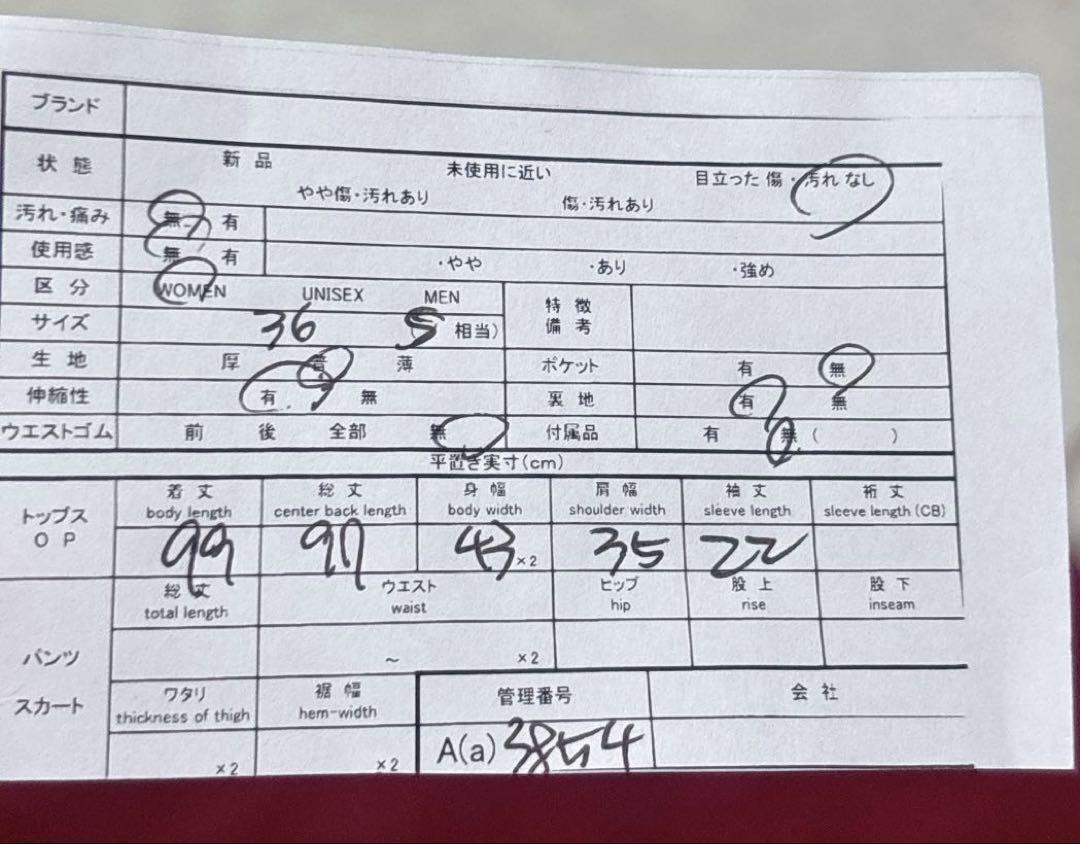 ブランド
状態 新品 未使用に近い 目立った傷・汚れなし
やや傷・汚れあり 傷・汚れあり
汚れ・痛み 無 有
使用感 無 有 ・やや ・あり ・強め
区分 WOMEN UNISEX MEN 特徴
備考
サイズ 36 S 相当)
生地 厚 普 薄 ポケット 有 無
伸縮性 有 無 裏地 有 無
ウエストゴム 前 後 全部 無 付属品 有 無 ( )
平置き実寸(cm)
トップス
OP
着丈 総丈 身幅 肩幅 袖丈 裄丈
body length center back length body width shoulder width sleeve length sleeve length (CB)
99 97 43 ×2 35 22
パンツ
スカート
総丈 ウエスト ヒップ 股上 股下
total length waist hip rise inseam
~ ×2
ワタリ 裾幅 管理番号 会社
thickness of thigh hem-width
×2 ×2 A(a) 3854